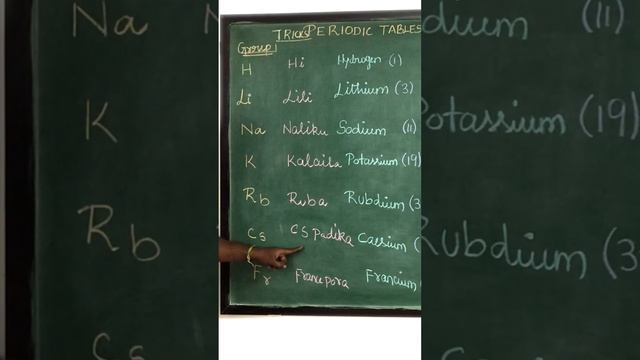 TRICKS PERIODIC TABLES
Group 1
H Hi Hydrogen (1)
Li Lili Lithium (3)
Na Naliku Sodium (11)
K Kalaila Potassium (19)
Rb Ruba Rubdium (3
Cs CS Padika Caesium (
Fr Francepora Francium (
Na
K
Rb
Cs
(11)
Potassium (19)
Rubdium (3